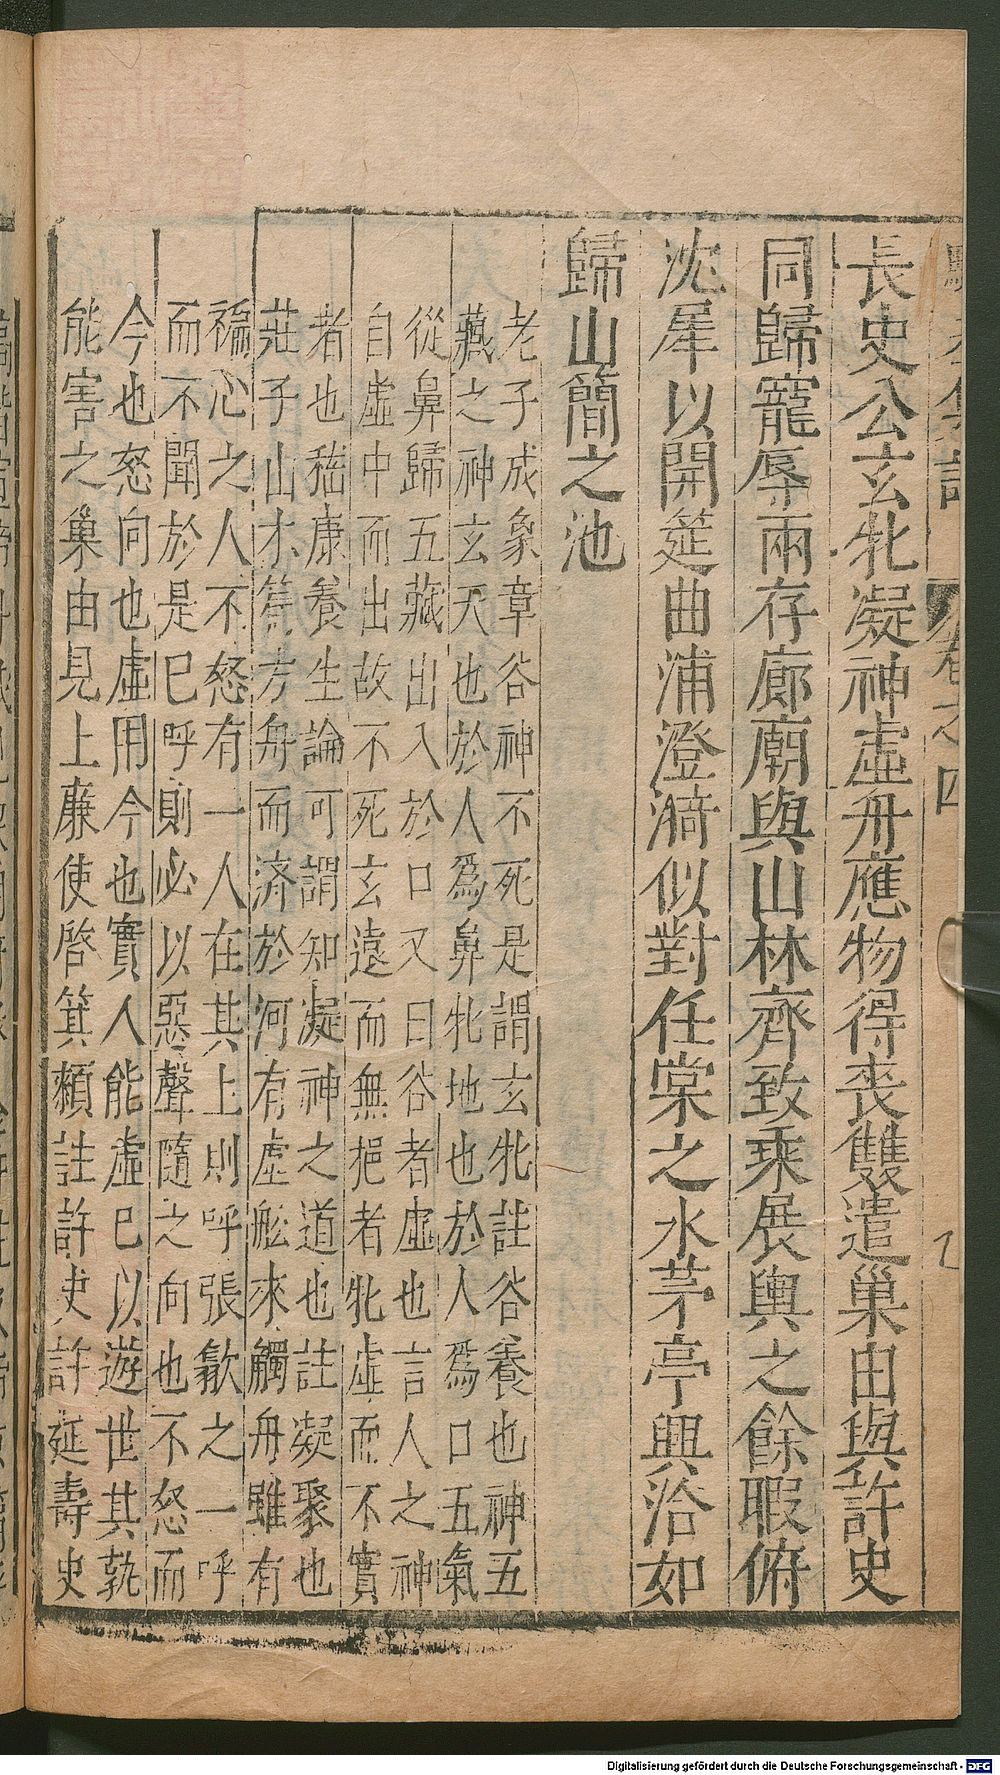 卷之四
長史公玄牝凝神虛舟應物得丧雙遣巢由與許史
同歸寵辱兩存廊廟與山林齊致乘展輿之餘暇俯
沈犀以開筵曲浦澄漪似對任棠之水茅亭興洽如
歸山簡之池
老子成象章谷神不死是謂玄牝註谷養也神五
藏之神玄天也於人爲鼻牝地也於人爲口五氣
從鼻歸五藏出入於口又曰谷者虛也言人之神
自虛中而出故不死玄遠而無挹者牝虛而不實
者也嵇康養生論可謂知凝神之道也註凝聚也
莊子山木篇方舟而濟於河有虛舩來觸舟雖有
褊心之人不怒有一人在其上則呼張歙之一呼
而不聞於是巳呼則必以惡聲隨之向也不怒而
今也怒向也虛用今也實人能虛巳以遊世其孰
能害之巢由見上蔗使啓箕潁註許史許延壽史
Digitalisierung gefördert durch die Deutsche Forschungsgemeinschaft - DFG